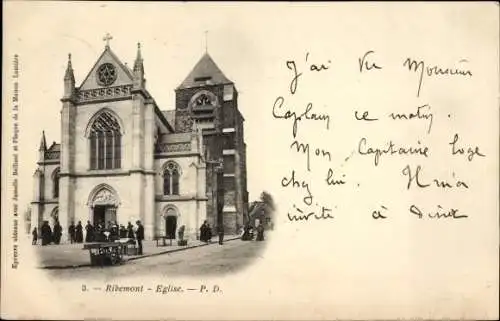 J'ai vu Monsieur
Caplain ce matin.
Mon Capitaine loge
chez lui. Il m'a
invité à dîner
3. - Ribemont - Eglise. - P. D.
Epreuve obtenue avec Jumelle Bellieni et Plaque de la Maison Lumière